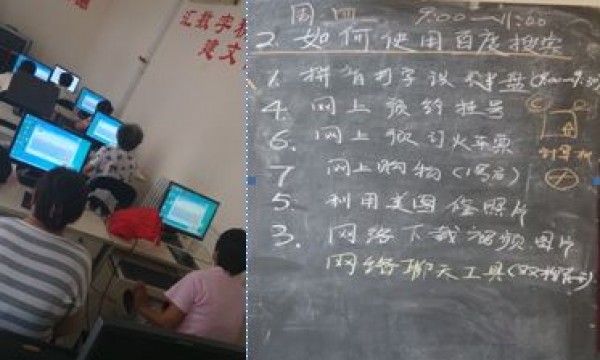 汇数字
建文
周四 9:00—11:00
2. 如何使用百度搜索
1. 拼音打字 U盘
4. 网上预约挂号
6. 网上预订火车票
7 网上购物(1号店)
计算机
5. 利用美图修照片
3. 网络下载视频.图片
网络聊天工具